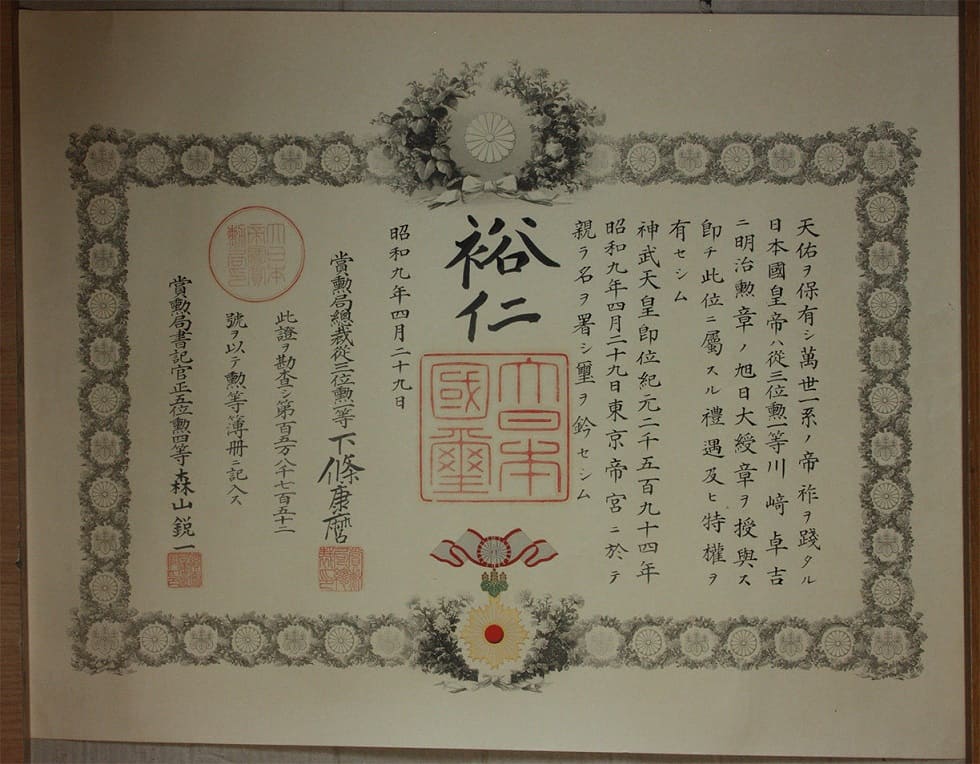 天佑ヲ保有シ萬世一系ノ帝祚ヲ踐タル
日本國皇帝ハ從三位勲一等川﨑卓吉
ニ明治勲章ノ旭日大綬章ヲ授與ス
卽チ此位ニ屬スル禮遇及ヒ特權ヲ
有セシム
神武天皇卽位紀元二千五百九十四年
昭和九年四月二十九日東京帝宮ニ於テ
親ラ名ヲ署シ璽ヲ鈐セシム
裕仁
大日本國璽
昭和九年四月二十九日
賞勲局總裁從三位勲一等下條康麿
此證ヲ勘査シ第百五万八千七百五十二
號ヲ以テ勲等簿册ニ記入ス
大日本帝國賞勲局印
賞勲局書記官正五位勲四等森山鋭一